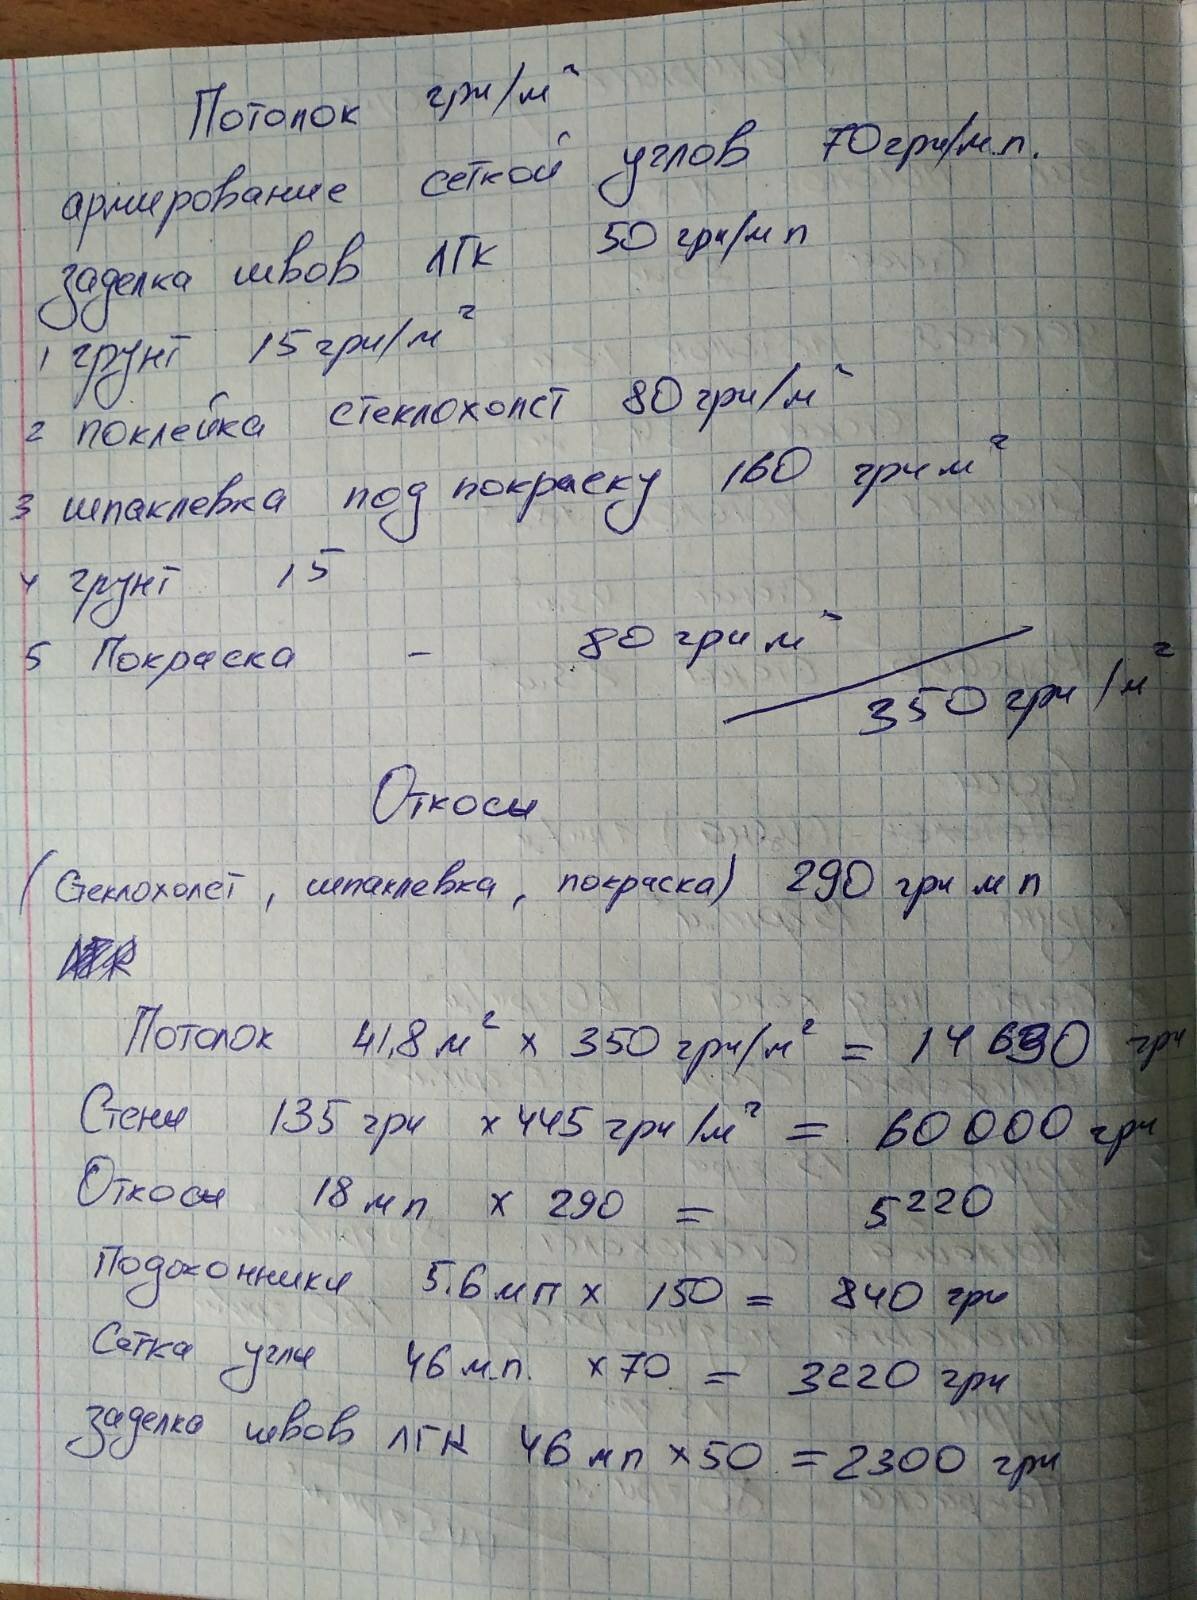 Потолок грн/м²
армирование сеткой углов 70 грн/м.п.
заделка швов ЛГК 50 грн/м п
1 грунт 15 грн/м²
2 поклейка стеклохолст 80 грн/м²
3 шпаклевка под покраску 160 грн м²
4 грунт 15
5 Покраска – 80 грн м²
350 грн/м²
Откосы
(Стеклохолст, шпаклевка, покраска) 290 грн м п
Потолок 41,8 м² х 350 грн/м² = 14630 грн
Стены 135 грн х 445 грн/м² = 60000 грн
Откосы 18 м п х 290 = 5220
Подоконники 5.6 м п х 150 = 840 грн
Сетка углы 46 м.п. х 70 = 3220 грн
заделка швов ЛГК 46 м п х 50 = 2300 грн